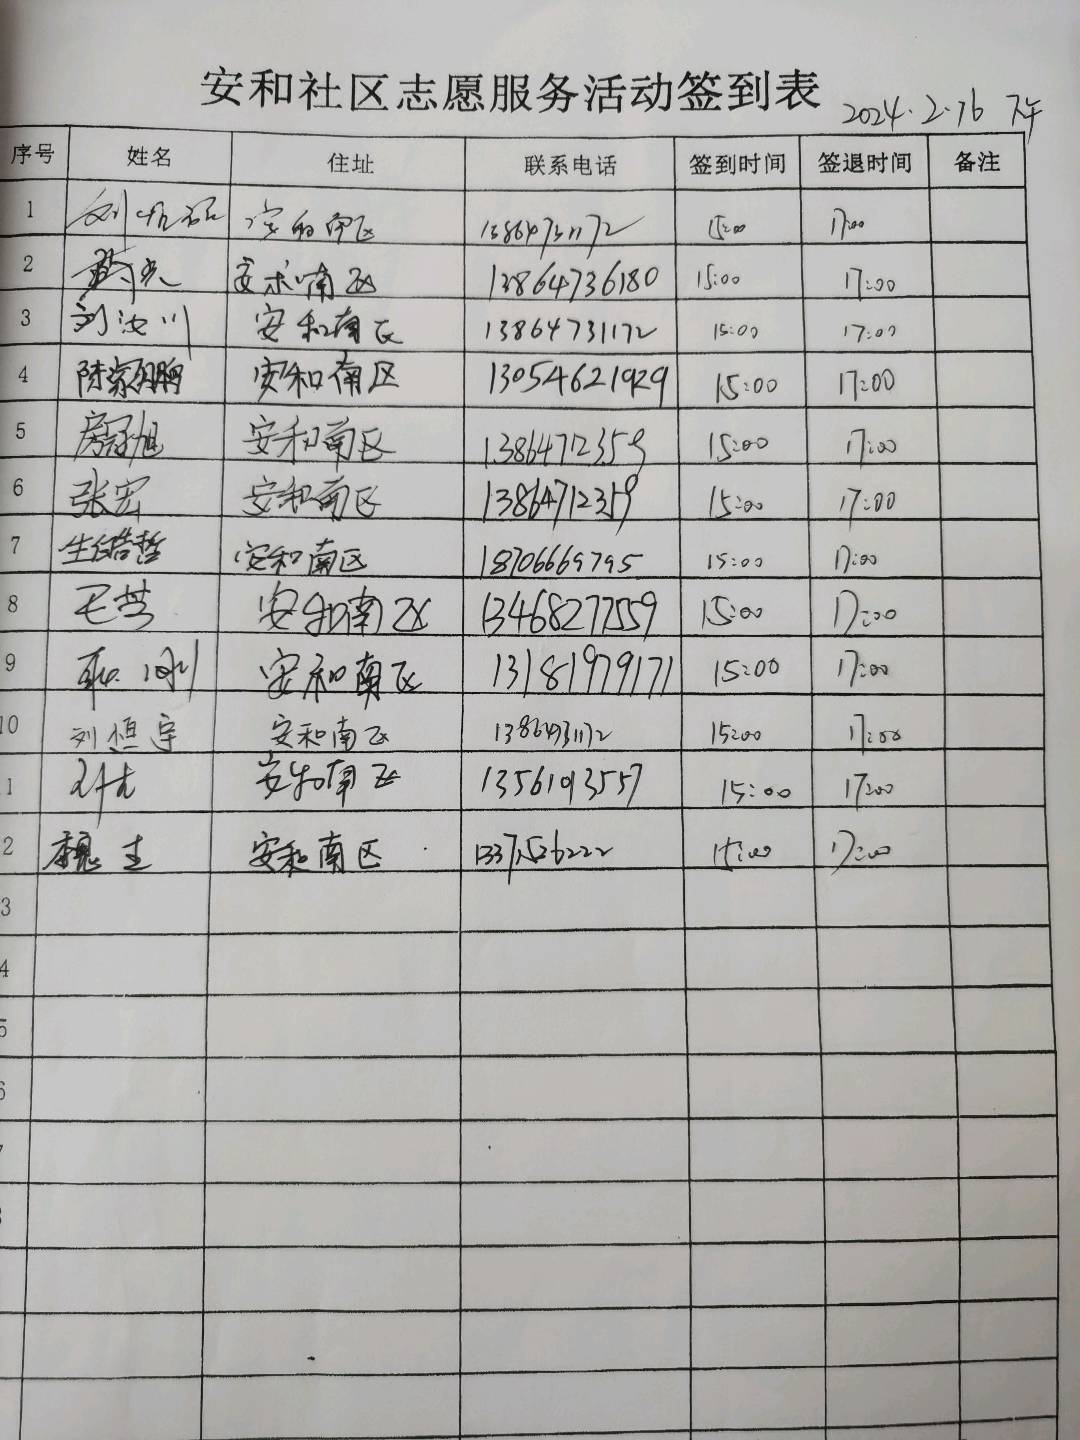 安和社区志愿服务活动签到表
2024.2.16 下午
序号 姓名 住址 联系电话 签到时间 签退时间 备注
1 安和南区 13864731172 15:00 17:00
2 安和南区 13864736180 15:00 17:00
3 刘汝川 安和南区 13864731172 15:00 17:00
4 陈家鹏 安和南区 13054621929 15:00 17:00
5 房冠旭 安和南区 13864712359 15:00 17:00
6 张宏 安和南区 13864712359 15:00 17:00
7 安和南区 18706669795 15:00 17:00
8 安和南区 13468277559 15:00 17:00
9 安和南区 13181979171 15:00 17:00
10 刘恒宇 安和南区 15:00 17:00
1 安和南区 13561013557 15:00 17:00
2 魏 安和南区 13371526222 15:00 17:00
3
4
5
6
7